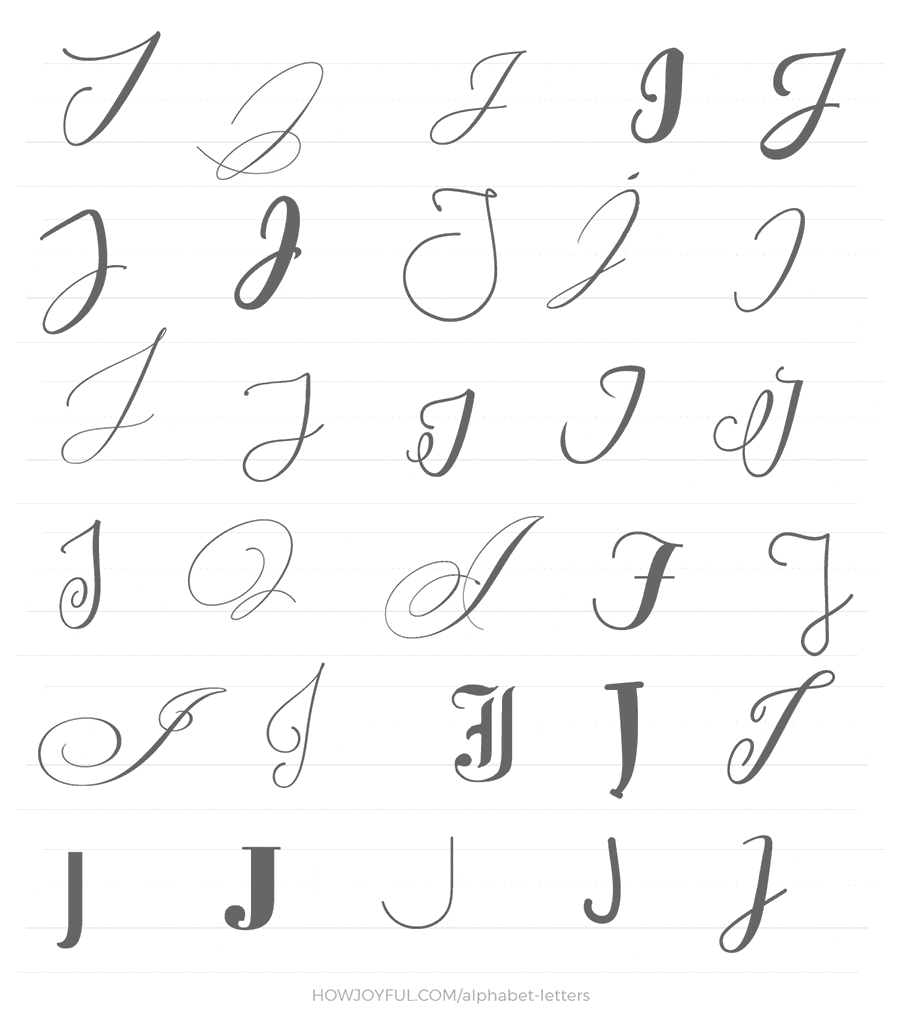 J J J J J
J J J J J
J J J J J
J J J J J
J J J J J
J J J J J
HOWJOYFUL.COM/alphabet-letters